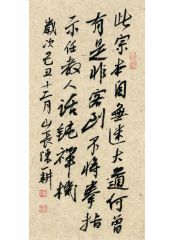 此宗本自無迷大道何曾
有是非客到不將拳指
示任教人話鈍禪機
歲次己丑十二月山長陳一耕